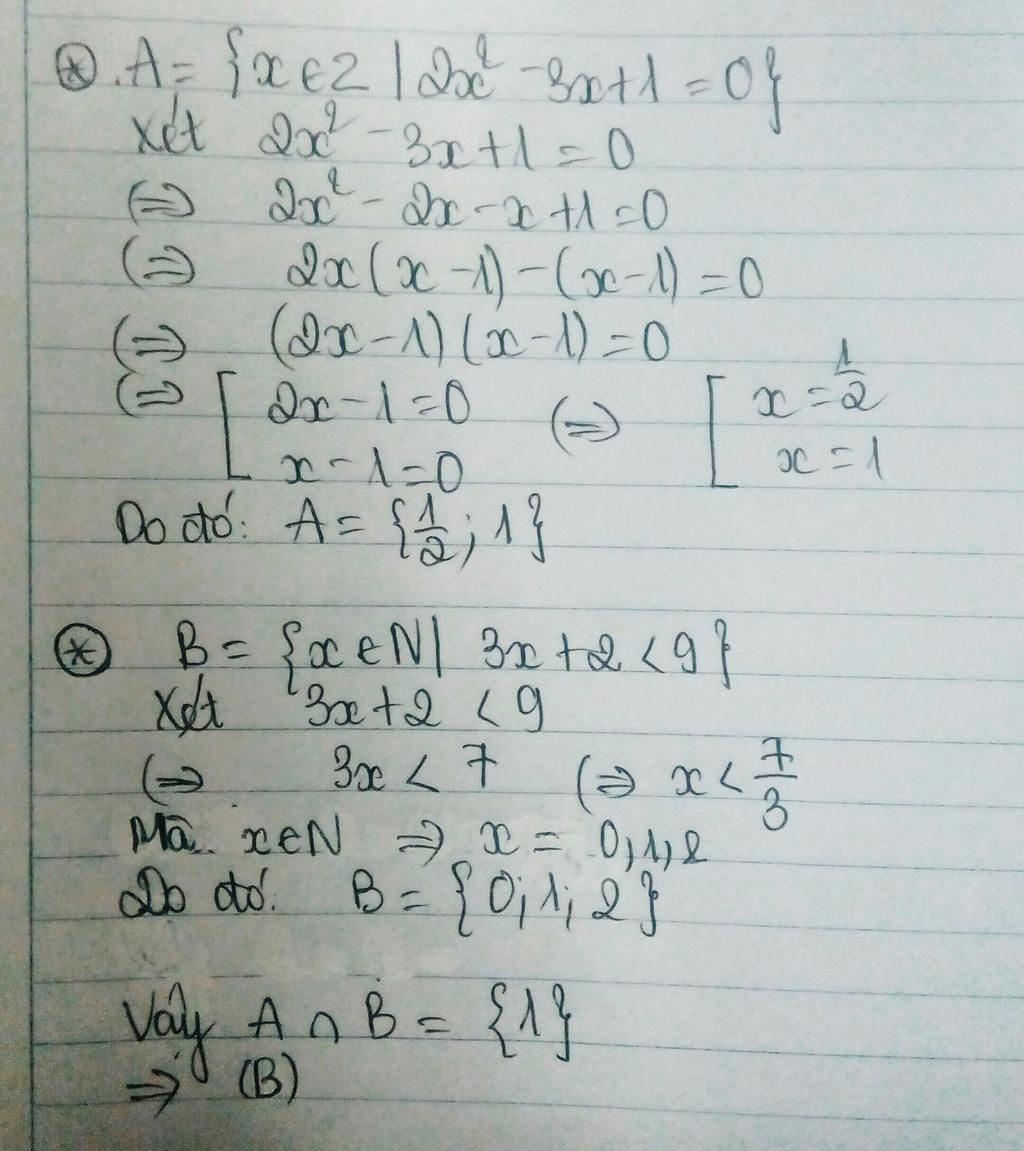 ⊛. A = {x ∈ Z | 2x² - 3x + 1 = 0}
Xét 2x² - 3x + 1 = 0
(=) 2x² - 2x - x + 1 = 0
(=) 2x(x - 1) - (x - 1) = 0
(=) (2x - 1)(x - 1) = 0
(=) [ 2x - 1 = 0 (=) [ x = 1/2
x - 1 = 0 x = 1
Do đó: A = {1/2; 1}
⊛ B = {x ∈ N | 3x + 2 < 9}
Xét 3x + 2 < 9
(=) 3x < 7 (=) x < 7/3
Mà x ∈ N => x = 0, 1, 2
Do đó: B = {0; 1; 2}
Vậy A ∩ B = {1}
=> (B)